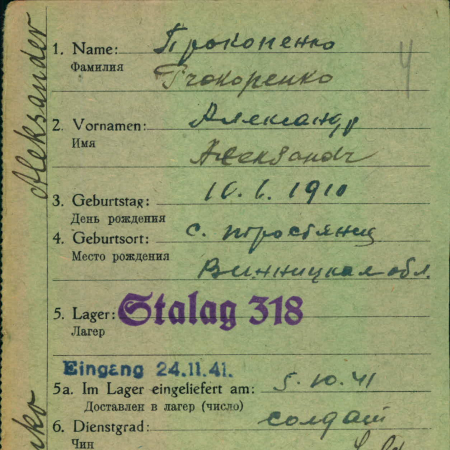 1. Name: Прокопенко
Фамилия Prokopenko
2. Vornamen: Александр
Имя Aleksandr
3. Geburtstag: 10. 6. 1910
День рождения
4. Geburtsort: с. Тростянец
Место рождения Винницкая обл.
5. Lager: Stalag 318
Лагер
Eingang 24.11.41.
5a. Im Lager eingeliefert am: 5. 10. 41
Доставлен в лагер (число)
6. Dienstgrad: солдат
Чин
Aleksander
nko
4